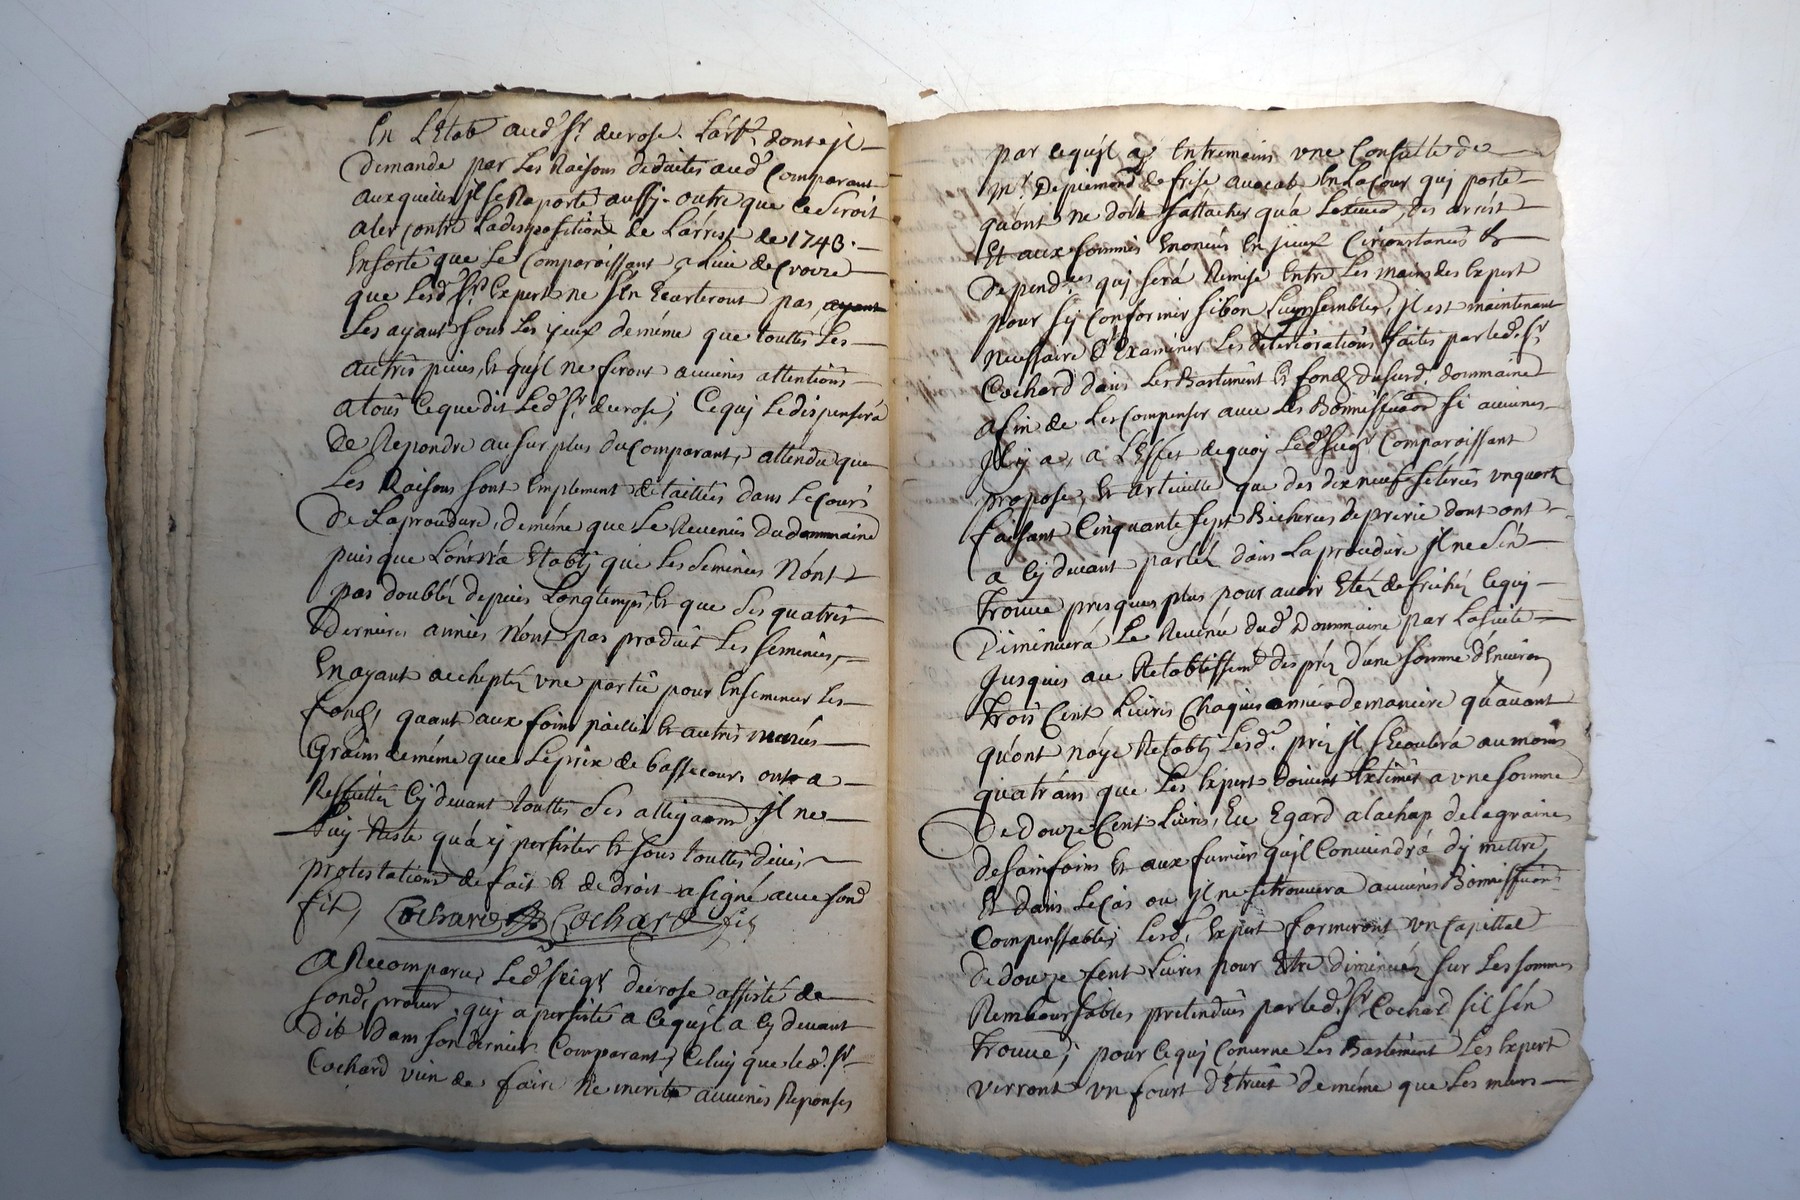 En L'Etab aud. Sr. deurose. L'art. dont il
demande par Les Raisons deduites aud. Comparant
auxquelles il se Raporte aussy. outre que ce seroit
aler contre La disposition de L'arrest de 1743.
Ensorte que Le Comparoissant a Lieu de Croire
que Lesd. Srs. Expert ne s'en Ecarteront pas ayant
Les ayant sous Les yeux de même que touttes Les
autres pieces, et qu'il ne feront aucunes attentions
a tous Ceque dit Led. Sr. deurose; Cequi Le dispensera
de Repondre au surplus du Comparant, attendu que
Les Raisons sont Emplement detaillées dans Le Cours
De La procedure, de même que Le Revenus du dommaine
puisque L'on n'a Etably que Les Semences N'ont
pas doublés depuis Longtemps, et que Les quatres
Dernieres années N'ont pas produit Les semences,
En ayant acheptés une partie pour Ensemencer Les
fonds, quant aux foins pailles et autres menus
Grains de même que Le prix de bassecour, ont a
Reffutter Cy devant touttes Ses allegaons il ne
Luy Reste qu'a y persister et sous touttes dües
protestations de fait et de droit a signé avec sond.
fils, Cochard Cochard fils
A Recomparu, Led. Seigr. deurose assisté de
sond. procur. qui a persisté a Cequ'il a Cy devant
Dit Dans son dernier Comparant; Celuy que Led. Sr.
Cochard vien de faire Ne merite aucunes Reponses
par cequ'il a Entremains une Consulte de
Mr. Depiemond de frise avocat En La Cour qui porte
qu'ont ne doit s'attacher qu'a des arrest
Et aux sommes Enoncées En Circonstances et
Depend.ces qui sera Remise Entre Les mains des Expert
pour s'y Conformer si bon Leur semble, il est maintenant
Necessaire d'Examiner Les deteriorations faites par led. Sr.
Cochard dans Les Bastiment et fond du susd. dommaine
afin de Les Compenser avec Les Bonniff.aons si aucunes
Il y a, a L'Effet dequoy Led. Seigr. Comparoissant
propose, et articulle que des dix neuf séterées un quart
faisant Cinquante sept Bicherées de prerie dont ont
a Cy devant parlés dans La procedure il ne s'en
trouve presques plus pour avoir Etés defrichés Cequi
Diminuera Le Revenue dud. Dommaine par La suite
Jusques au Retablissem.t des prés d'une somme d'Environ
trois Cent Livres Chaques année de maniere qu'avant
qu'ont n'aye Retably Lesd. prés il s'Ecoulera au moins
quatr'ans que Les Expert doivent Extimer a une somme
De douze Cent Livres, Eu Egard a l'achap de la graine
de sainfoins et aux fumiers qu'il Conviendra d'y mettre,
Et dans Le Cas ou il ne se trouvera aucunes Bonniff.aons
Compensables; Lesd. Expert formeront un Capittal
de douze Cent Livres pour Etre diminués sur Les sommes
Remboursables pretendües par led. Sr. Cochard s'il s'en
trouve; pour Cequi Concerne Les Bastiment Les Expert
verront un fourt détruit de même que Les murs